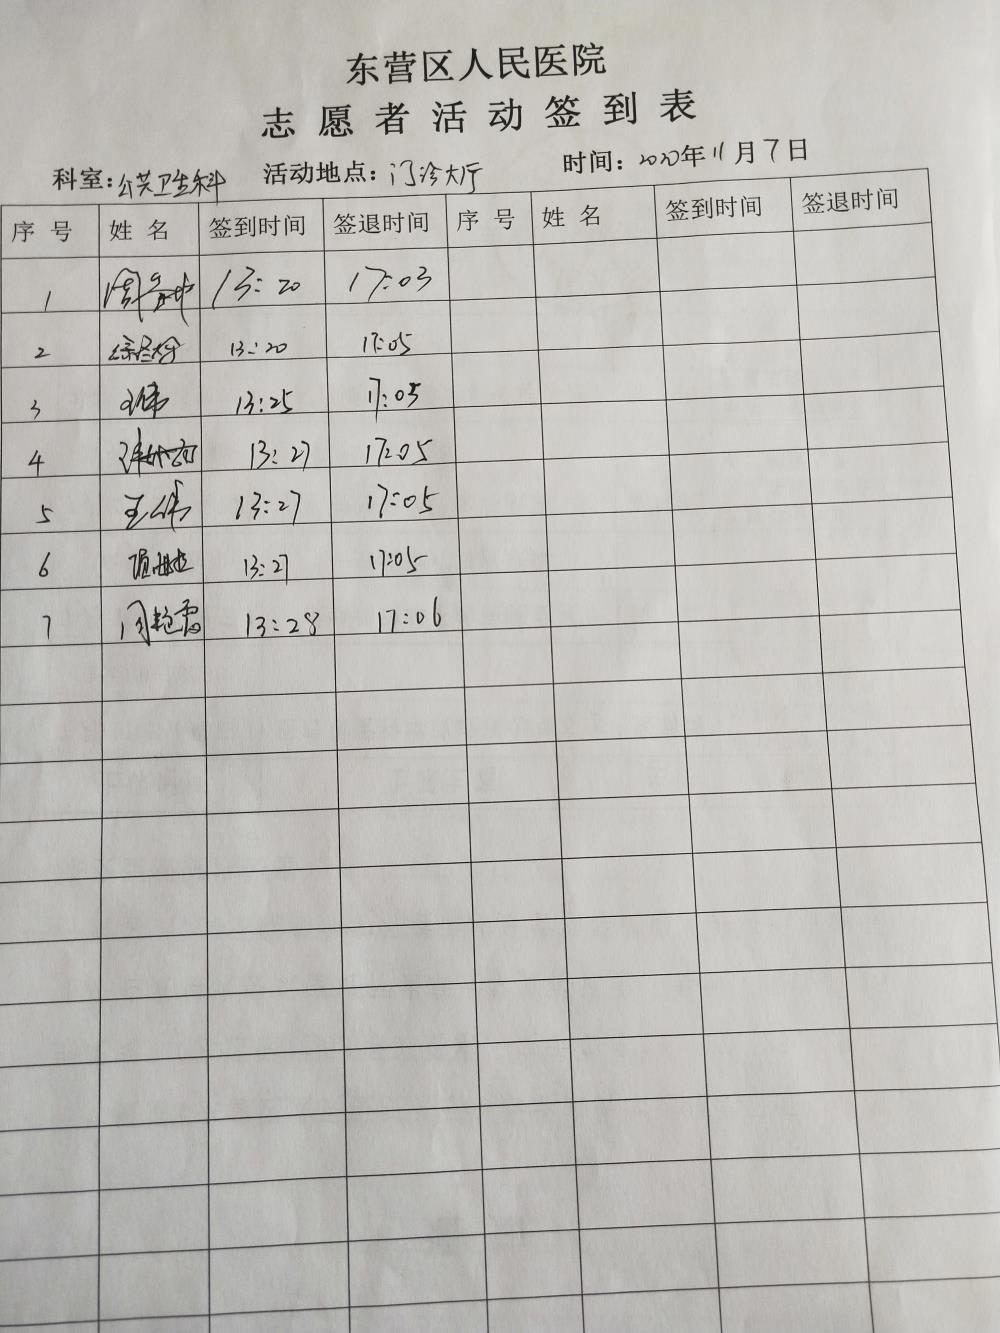 东营区人民医院
志愿者活动签到表
科室:公共卫生科 活动地点:门诊大厅 时间:2020年11月7日
序号 姓名 签到时间 签退时间 序号 姓名 签到时间 签退时间
1 13:20 17:03
2 13:20 17:05
3 13:25 17:05
4 13:27 17:05
5 王伟 13:27 17:05
6 13:27 17:05
7 闫艳霞 13:28 17:06